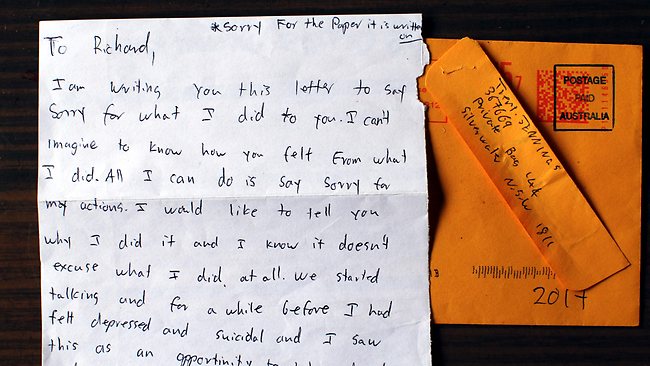 *Sorry For the Paper it is written
on
To Richard,
I am writing you this letter to say
Sorry for what I did to you. I can't
imagine to know how you felt From what
I did. All I can do is say sorry for
my actions. I would like to tell you
why I did it and I know it doesn't
excuse what I did, at all. We started
talking and for a while before I had
felt depressed and suicidal and I saw
this as an opportunity to
POSTAGE
PAID
AUSTRALIA
JENNINGS
Private Bag 144
Silverwater N.S.W 1811
2017